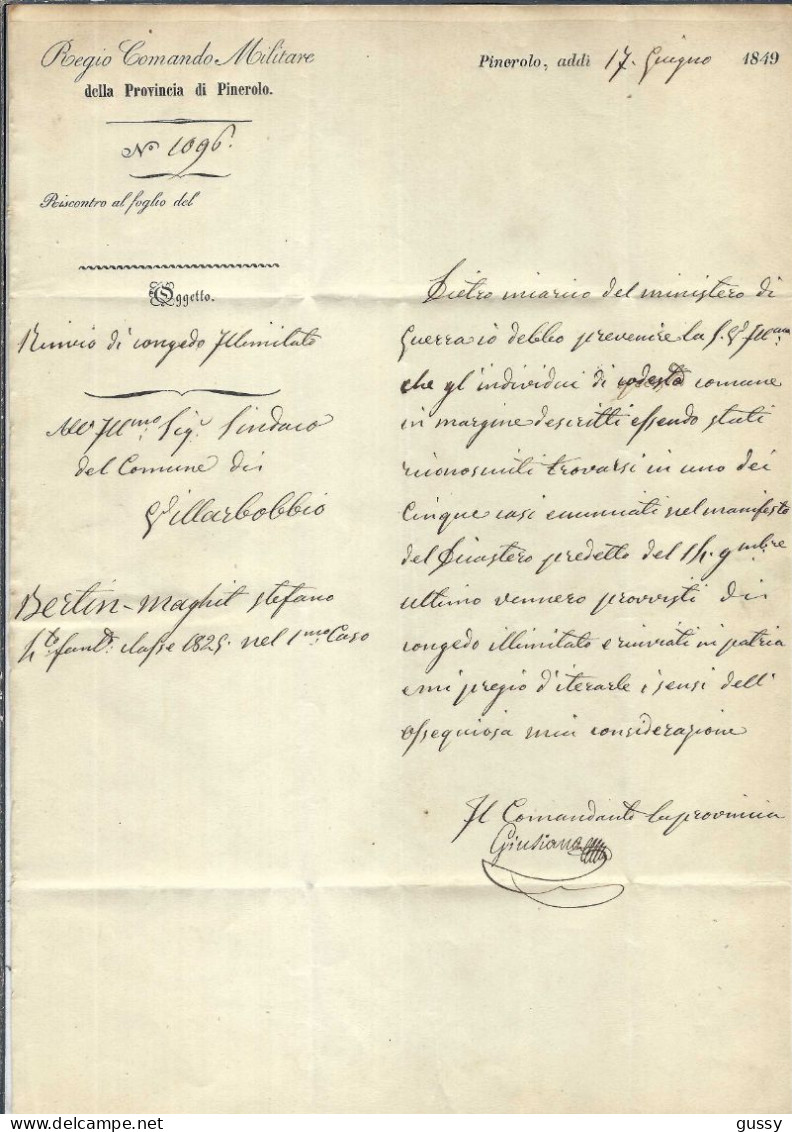 Regio Comando Militare
della Provincia di Pinerolo.
N° 1096.
Riscontro al foglio del
Oggetto.
Rinvio di congedo Illimitato
All' Ill.mo Sig.r Sindaco
del Comune di
Villarbobbio
Bertin-Maghit Stefano
fant. classe 1825. nel 1.mo Caso
Pinerolo, addì 17. Giugno 1849
Dietro del ministero di
Guerra io debbo prevenire la S. V. Ill.ma
che gl'individui di codesto comune
in margine descritti essendo stati
riconosciuti trovarsi in uno dei
cinque casi enunciati nel manifesto
del Dicastero predetto del 14. 9mbre
ultimo vennero provvisti di
congedo illimitato e rinviati in patria
e mi pregio d'iterarle i sensi dell'
ossequiosa mia considerazione
Il Comandante la provincia
delcampe.net
gussy